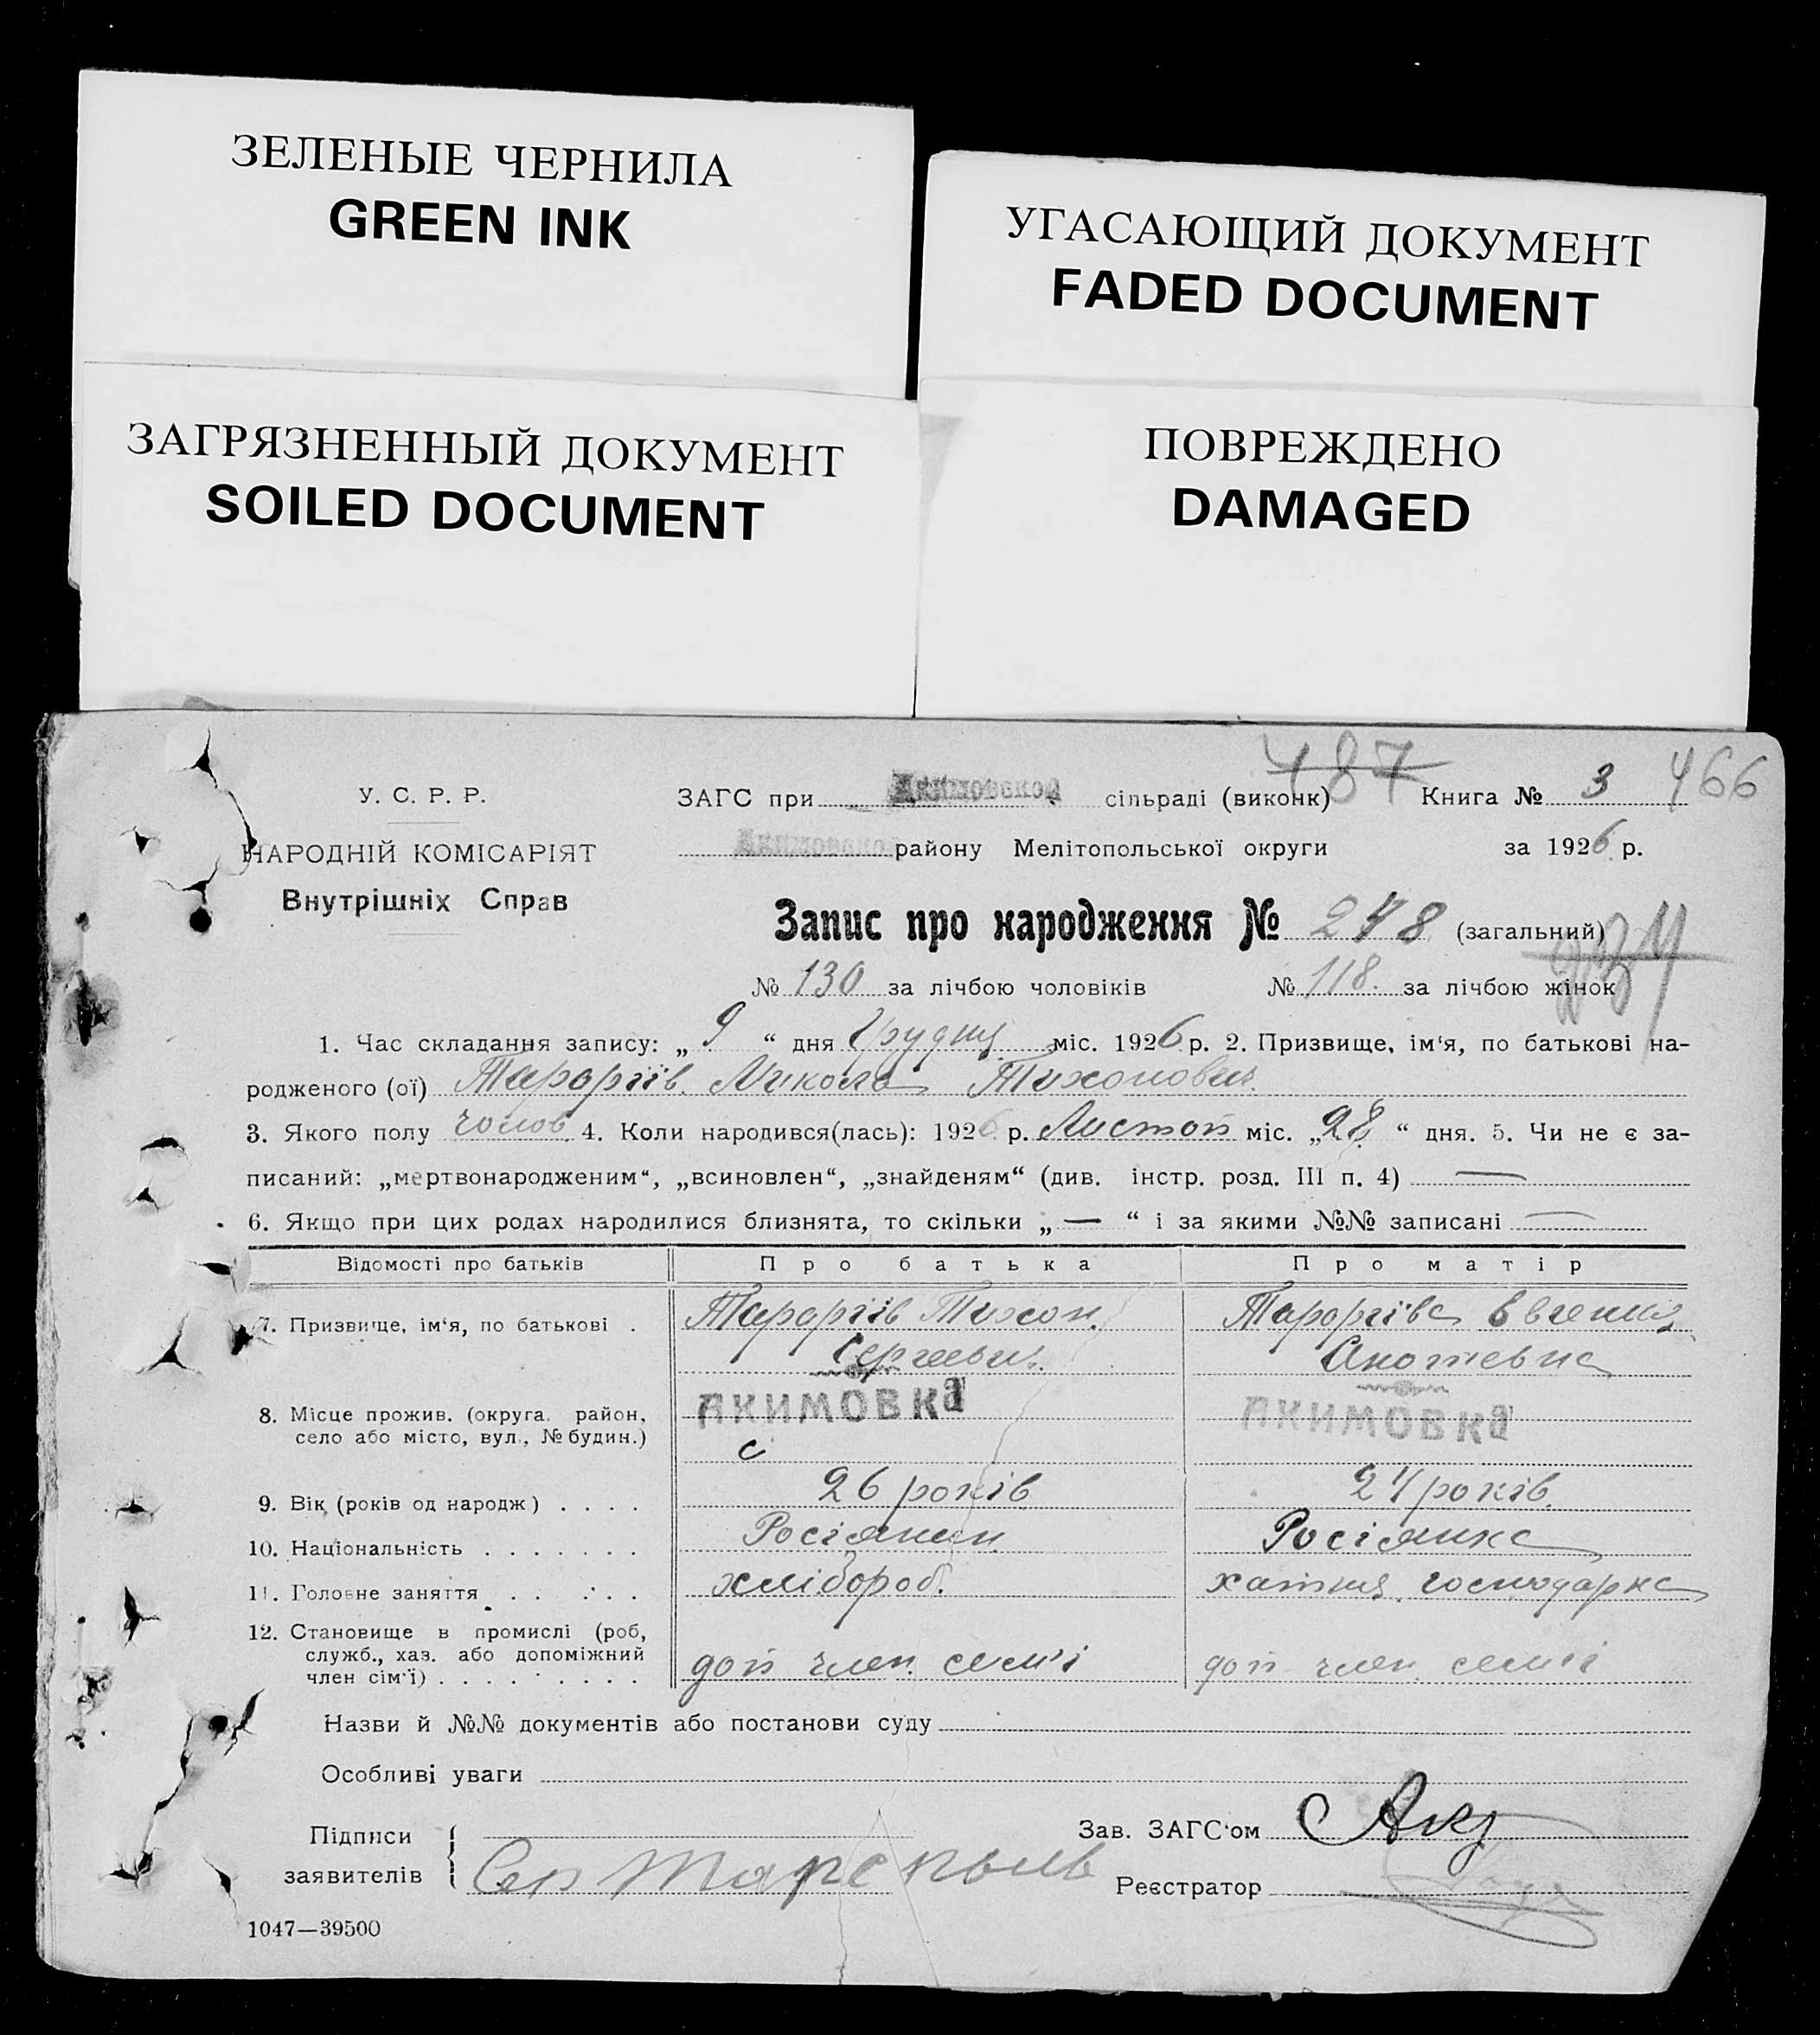 ЗЕЛЕНЫЕ ЧЕРНИЛА
GREEN INK
УГАСАЮЩИЙ ДОКУМЕНТ
FADED DOCUMENT
ЗАГРЯЗНЕННЫЙ ДОКУМЕНТ
SOILED DOCUMENT
ПОВРЕЖДЕНО
DAMAGED
487 466
У. С. Р. Р.
ЗАГС при сільраді (виконк) Книга № 3
НАРОДНІЙ КОМІСАРІЯТ
району Мелітопольської округи за 1926 р.
Внутрішніх Справ
Запис про народження № 248 (загальний)
№ 130 за лічбою чоловіків № 118. за лічбою жінок
1. Час складання запису: „ 9 “ дня Грудня міс. 1926 р. 2. Призвище, ім‘я, по батькові на-
родженого (ої) Микола Тихонович
3. Якого полу чолов. 4. Коли народився(лась): 1926 р. Листоп міс. „28“ дня. 5. Чи не є за-
писаний: „мертвонародженим“, „всиновлен“, „знайденям“ (див. інстр. розд. III п. 4) —
6. Якщо при цих родах народилися близнята, то скільки „ — “ і за якими №№ записані —
Відомості про батьків Про батька Про матір
7. Призвище, ім‘я, по батькові . Тихон Євгенія
Сергієвич
8. Місце прожив. (округа, район, АКИМОВКа АКИМОВКа
село або місто, вул., № будин.) с
9. Вік (років од народж) . . . . 26 років 24 років.
10. Національність . . . . . . . Росіянин Росіянка
11. Головне заняття . . . . . хлібороб. хатня господарка
12. Становище в промислі (роб,
служб., хаз. або допоміжний
член сім‘ї) . . . . . . . . доп член. семʼі доп член. семʼі
Назви й №№ документів або постанови суду
Особливі уваги
Підписи
заявителів
Зав. ЗАГС‘ом
Реєстратор
1047—39500